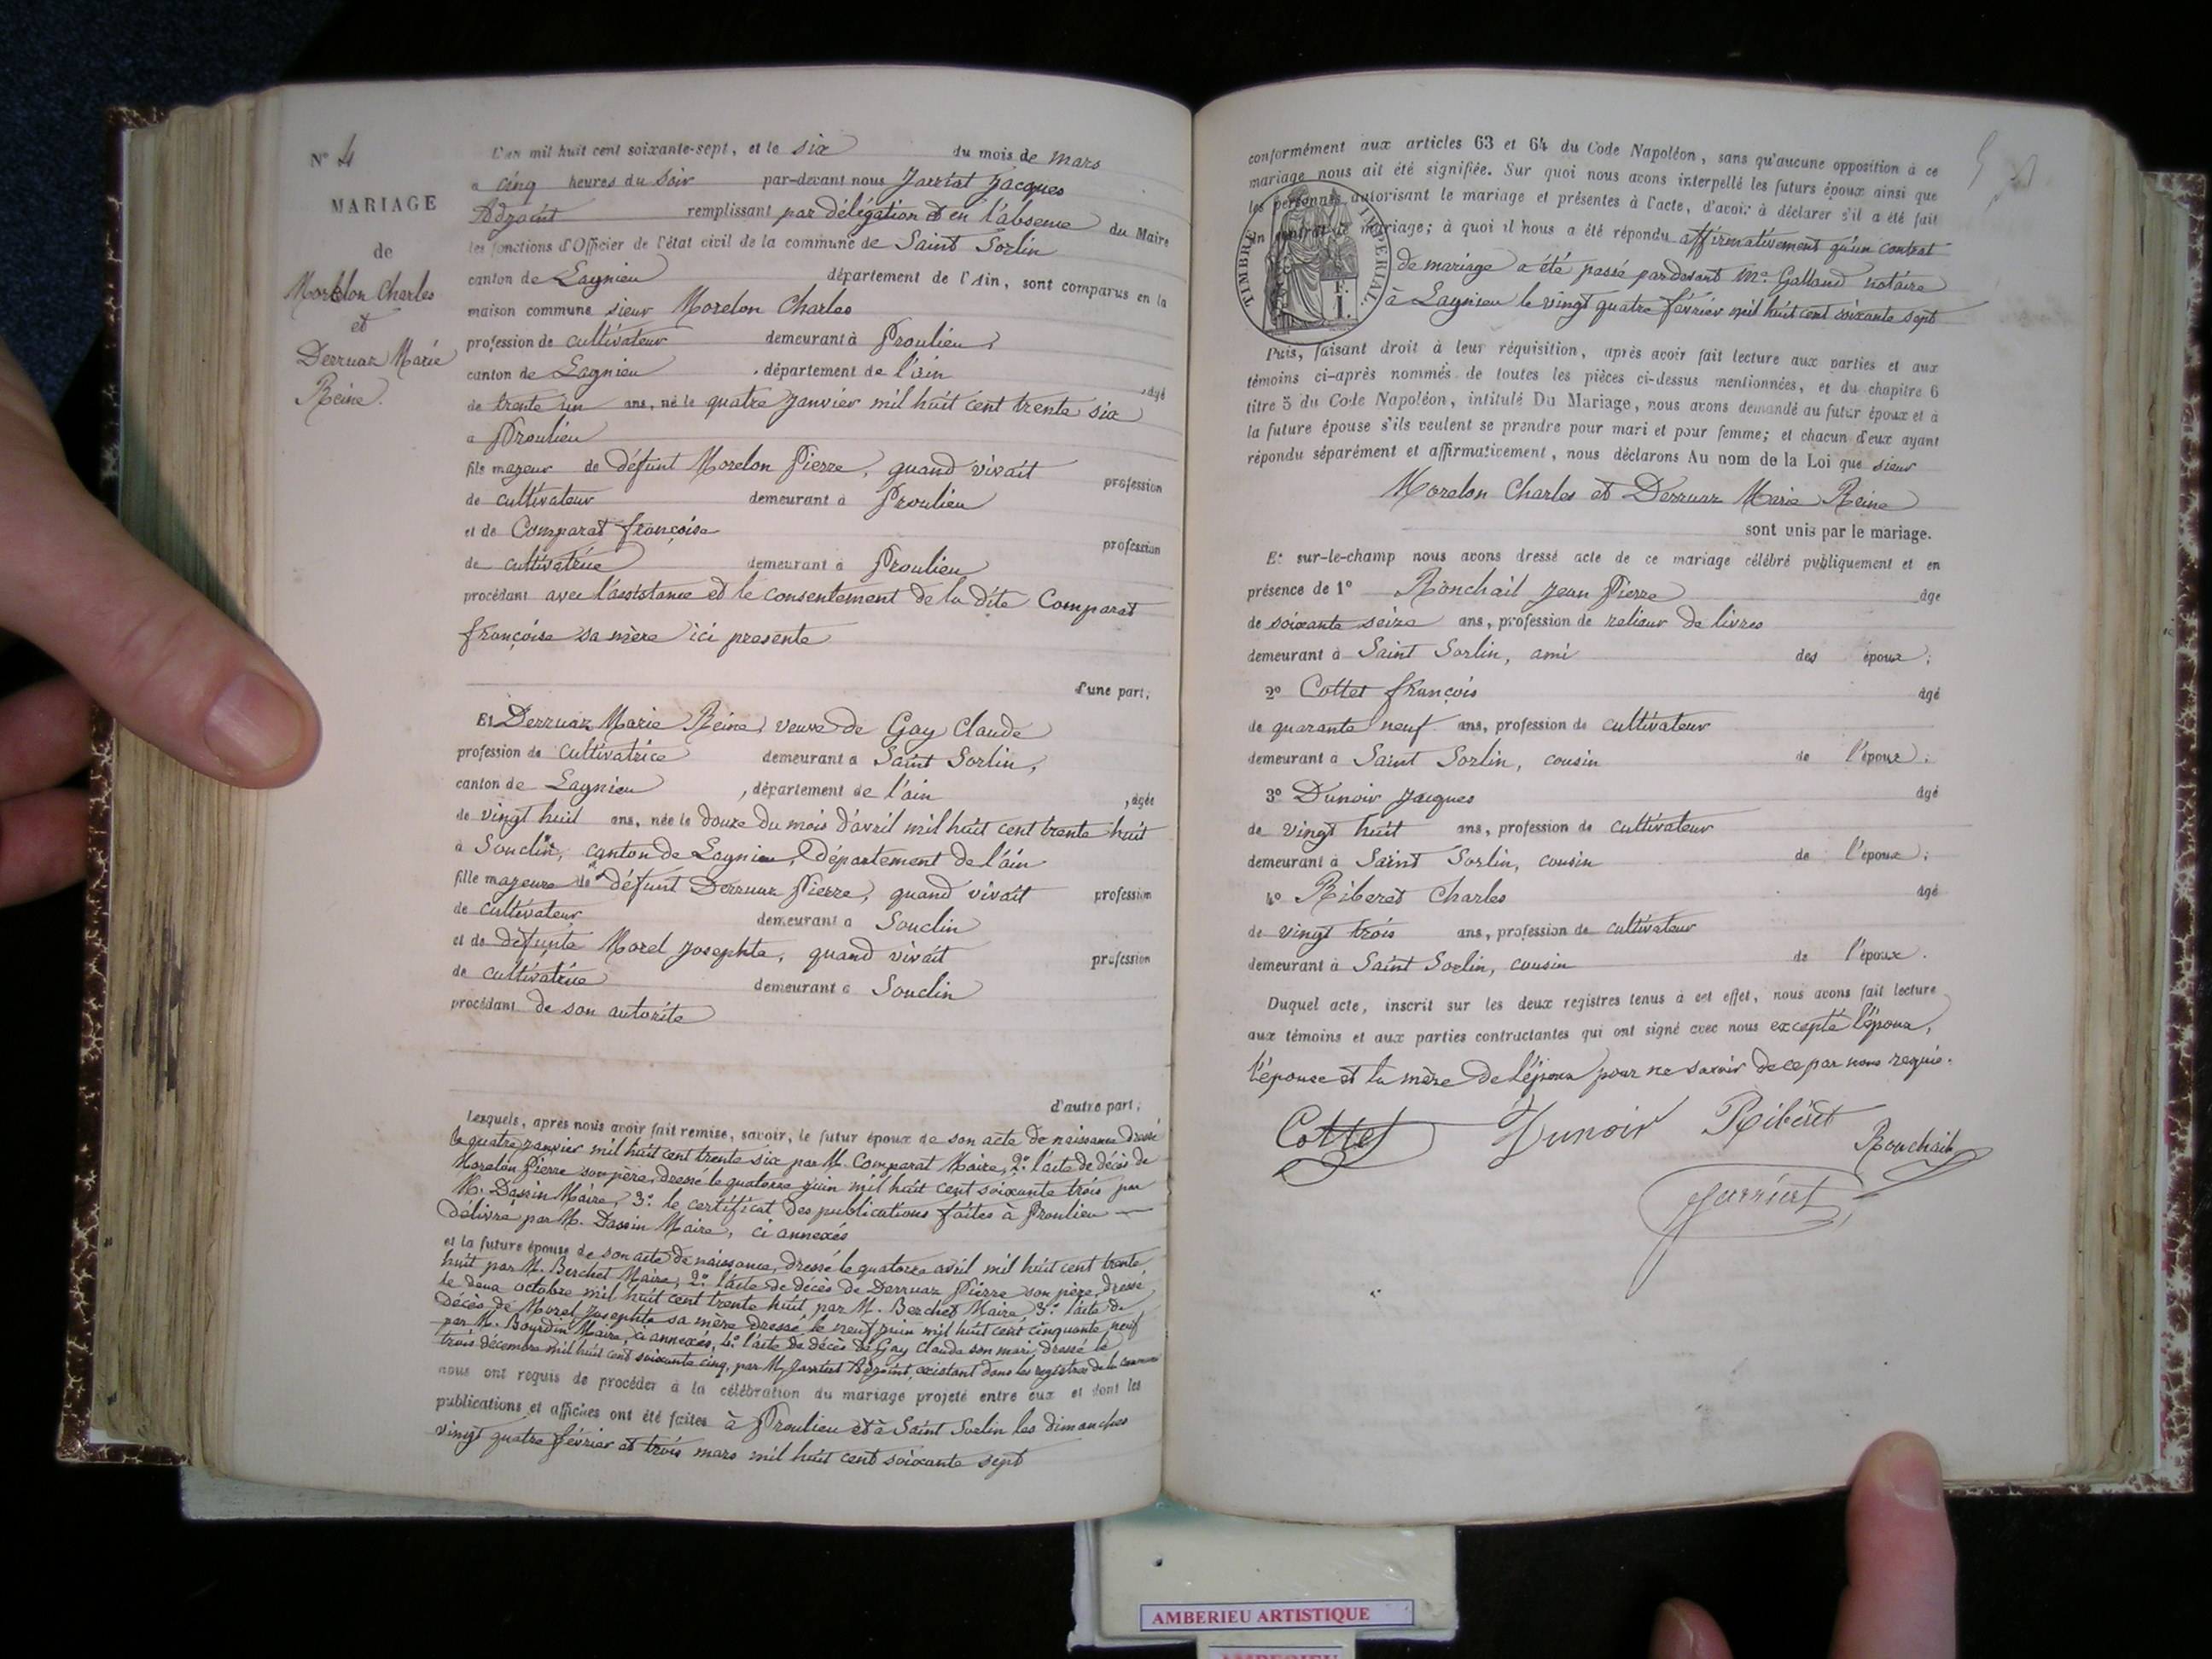 N° 4
MARIAGE
de
Morelon Charles
et
Derruaz Marie
Reine.
L'an mil huit cent soixante-sept, et le six du mois de mars
a cinq heures du soir par-devant nous Jarrtat Jacques
Adjoint remplissant par délégation et en l'absence du Maire
les fonctions d'Officier de l'état civil de la commune de Saint Sorlin
canton de Lagnieu département de l'Ain, sont comparus en la
maison commune sieur Morelon Charles
profession de cultivateur demeurant à Proulieu,
canton de Lagnieu département de l'ain âgé
de trente un ans, né le quatre Janvier mil huit cent trente six
a Proulieu
fils majeur de défunt Morelon Pierre, quand vivait profession
de cultivateur demeurant à Proulieu
et de Comparat françoise profession
de cultivatrice demeurant à Proulieu
procédant avec l'assistance et le consentement de la dite Comparat
françoise sa mère ici presente
d'une part;
Et Derruaz Marie Reine, veuve de Gay Claude
profession de cultivatrice demeurant a Saint Sorlin,
canton de Lagnieu, département de l'ain, âgée
de vingt huit ans, née le douze du mois d'avril mil huit cent trente huit
à Souclin, canton de Lagnieu, Département de l'ain
fille majeure de défunt Derruaz Pierre, quand vivait profession
de cultivateur demeurant a Souclin
et de défunte Morel Josephte, quand vivait profession
de cultivatrice demeurant à Souclin
procédant de son autorité
d'autre part;
Lesquels, après nous avoir fait remise, savoir, le futur époux de son acte de naissance dressé
le quatre janvier mil huit cent trente six par M. Comparat Maire, 2° l'acte de décès de
Morelon Pierre son père, dressé le quatorze juin mil huit cent soixante trois par
M. Dassin Maire, 3° le certificat des publications faites à Proulieu
délivré par M. Dassin Maire, ci annexés
et la future épouse de son acte de naissance, dressé le quatorze avril mil huit cent trente
huit par M. Berchet Maire, 2° l'acte de décès de Derruaz Pierre son père, dressé
le deux octobre mil huit cent trente huit par M. Berchet Maire 3° l'acte de
décès de Morel Josephte sa mère dressé le neuf juin mil huit cent cinquante neuf
par M. Bourdin Maire, ci annexés, 4° l'acte de décès de Gay Claude son mari, dressé le
trois décembre mil huit cent soixante cinq, par M. Adjoint, existant dans les registres de la commune
nous ont requis de procéder à la célébration du mariage projeté entre eux et dont les
publications et affiches ont été faites à Proulieu et à Saint Sorlin les dimanches
vingt quatre février et trois mars mil huit cent soixante sept
conformément aux articles 63 et 64 du Code Napoléon, sans qu'aucune opposition à ce
mariage nous ait été signifiée. Sur quoi nous avons interpellé les futurs époux ainsi que
les personnes autorisant le mariage et présentes à l'acte, d'avoir à déclarer s'il a été fait
un contrat de mariage; à quoi il nous a été répondu affirmativement qu'un contrat
de mariage a été passé pardevant Me Galland notaire
à Lagnieu le vingt quatre février mil huit cent soixante sept
TIMBRE IMPERIAL
F. I.
Puis, faisant droit à leur réquisition, après avoir fait lecture aux parties et aux
témoins ci-après nommés de toutes les pièces ci-dessus mentionnées, et du chapitre 6
titre 5 du Code Napoléon, intitulé Du Mariage, nous avons demandé au futur époux et à
la future épouse s'ils veulent se prendre pour mari et pour femme; et chacun d'eux ayant
répondu séparément et affirmativement, nous déclarons Au nom de la Loi que sieur
Morelon Charles et Derruaz Marie Reine
sont unis par le mariage.
Et sur-le-champ nous avons dressé acte de ce mariage célébré publiquement et en
présence de 1° Ronchail Jean Pierre âge
de soixante seize ans, profession de relieur de livres
demeurant à Saint Sorlin, ami des époux;
2° Cottet françois âgé
de quarante neuf ans, profession de cultivateur
demeurant a Saint Sorlin, cousin de l'époux;
3° Dunoir Jacques âgé
de vingt huit ans, profession de cultivateur
demeurant à Saint Sorlin, cousin de l'époux;
4° Riberet Charles âgé
de vingt trois ans, profession de cultivateur
demeurant à Saint Sorlin, cousin de l'époux.
Duquel acte, inscrit sur les deux registres tenus à cet effet, nous avons fait lecture
aux témoins et aux parties contractantes qui ont signé avec nous excepté l'époux,
l'épouse et la mère de l'époux pour ne savoir de ce par nous requis.
Cottet Dunoir Ribéret Ronchail
AMBERIEU ARTISTIQUE
AMBERIEU